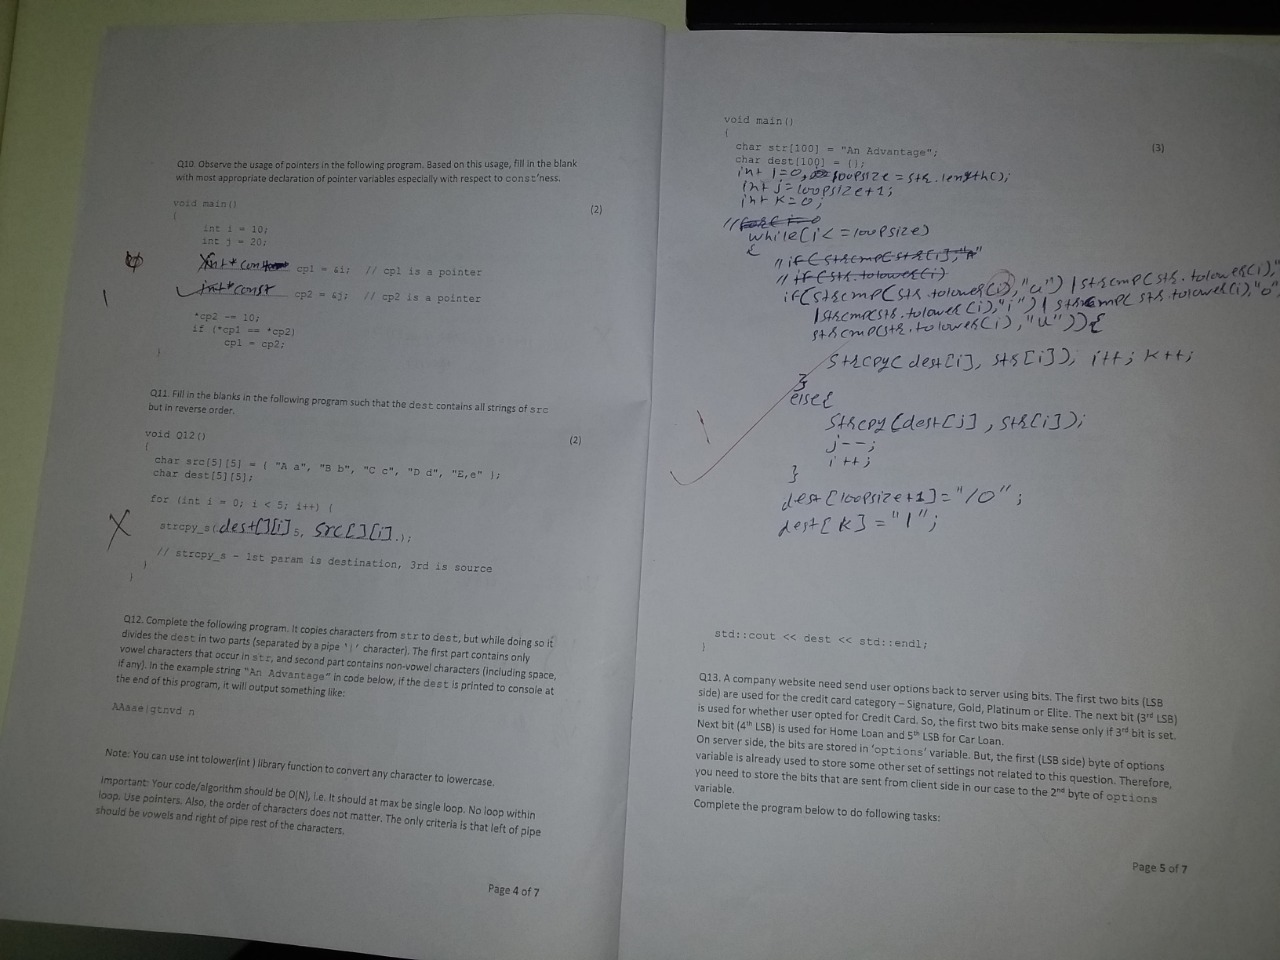 Q10. Observe the usage of pointers in the following program. Based on this usage, fill in the blank
with most appropriate declaration of pointer variables especially with respect to const'ness.
(2)
void main()
{
int i = 10;
int j = 20;
int* const cp1 = &i; // cp1 is a pointer
1 int*const cp2 = &j; // cp2 is a pointer
*cp2 -= 10;
if (*cp1 == *cp2)
cp1 = cp2;
}
Q11. Fill in the blanks in the following program such that the dest contains all strings of src
but in reverse order.
(2)
void Q12()
{
char src[5][5] = { "A a", "B b", "C c", "D d", "E,e" };
char dest[5][5];
for (int i = 0; i < 5; i++) {
strcpy_s(dest[][i] 5, src[][i] );
// strcpy_s - 1st param is destination, 3rd is source
}
}
Q12. Complete the following program. It copies characters from str to dest, but while doing so it
divides the dest in two parts (separated by a pipe '|' character). The first part contains only
vowel characters that occur in str, and second part contains non-vowel characters (including space,
if any). In the example string "An Advantage" in code below, if the dest is printed to console at
the end of this program, it will output something like:
AAaae|gtnvd n
Note: You can use int tolower(int ) library function to convert any character to lowercase.
Important: Your code/algorithm should be O(N), i.e. It should at max be single loop. No loop within
loop. Use pointers. Also, the order of characters does not matter. The only criteria is that left of pipe
should be vowels and right of pipe rest of the characters.
Page 4 of 7
void main()
{
(3)
char str[100] = "An Advantage";
char dest[100] = {};
int i=0, loopsize = str.length();
int j=loopsize+1;
int k=0;
while(i<=loopsize)
{
// if(strcmp(str[i],"A"
// if(str.tolower(i)
if(strcmp(str.tolower(i),"a") |strcmp(str.tolower(i),"
|strcmp(str.tolower(i),"i") | strcmp( str.tolower(i),"o",
strcmp(str.tolower(i),"u")){
strcpy(dest[i], str[i]); i++; k++;
}
else{
strcpy(dest[j], str[i]);
j--;
i++;
}
dest[loopsize+1]="/0";
dest[k]="|";
1
std::cout << dest << std::endl;
}
Q13. A company website need send user options back to server using bits. The first two bits (LSB
side) are used for the credit card category – Signature, Gold, Platinum or Elite. The next bit (3rd LSB)
is used for whether user opted for Credit Card. So, the first two bits make sense only if 3rd bit is set.
Next bit (4th LSB) is used for Home Loan and 5th LSB for Car Loan.
On server side, the bits are stored in 'options' variable. But, the first (LSB side) byte of options
variable is already used to store some other set of settings not related to this question. Therefore,
you need to store the bits that are sent from client side in our case to the 2nd byte of options
variable.
Complete the program below to do following tasks:
Page 5 of 7